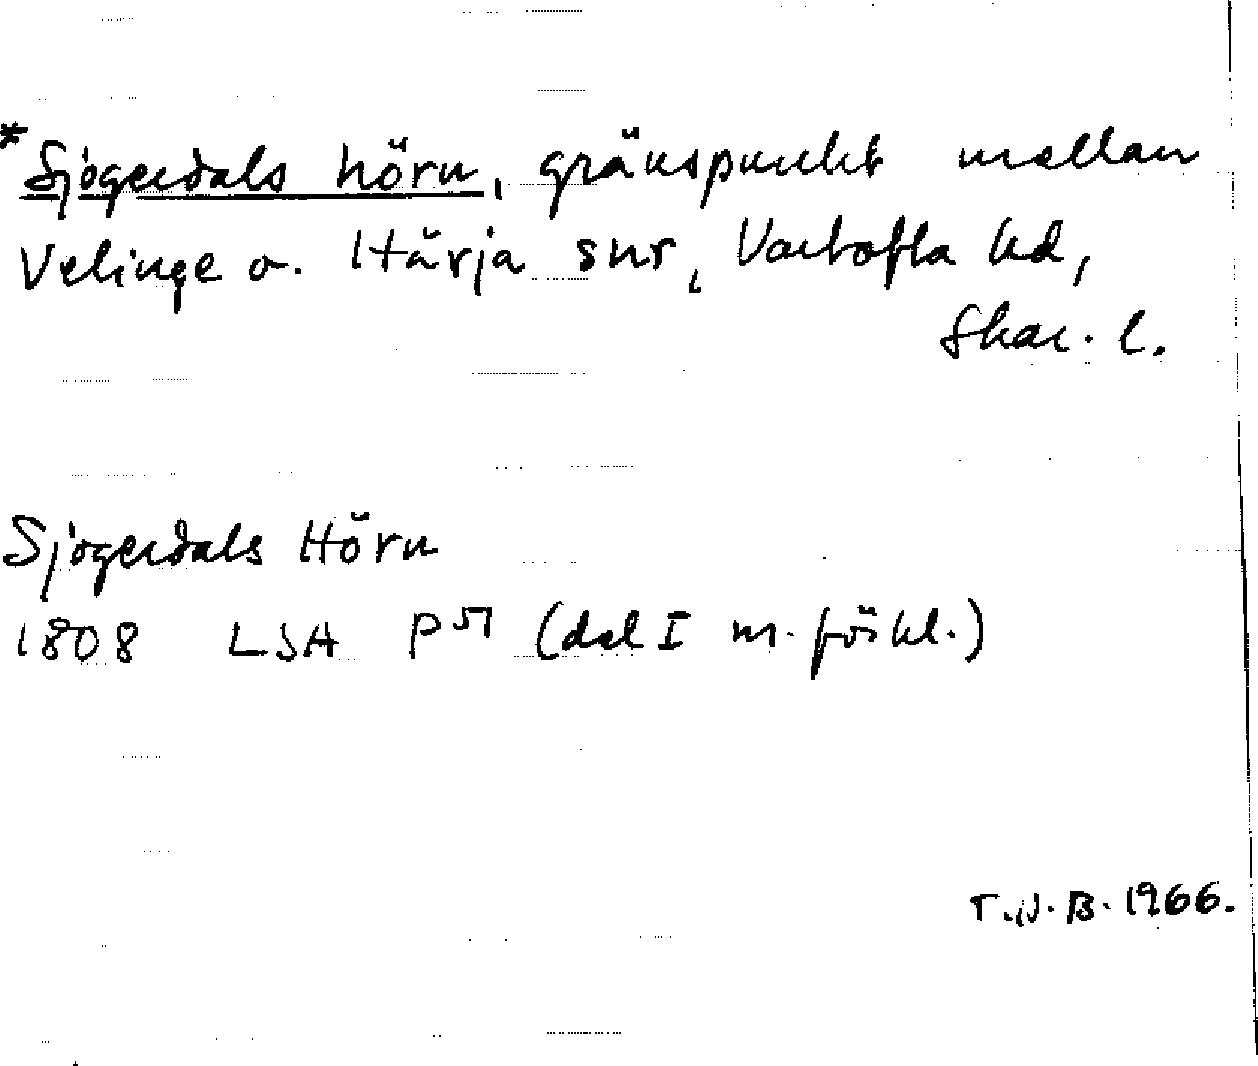 *Sjögerdals hörn, gränspunkt mellan
Velinge o. Härja snr, Vartofta hd,
Skar. l.
Sjögerdals Hörn
1808 LSA P51 (del I m. förkl.)
T.W.B. 1966.